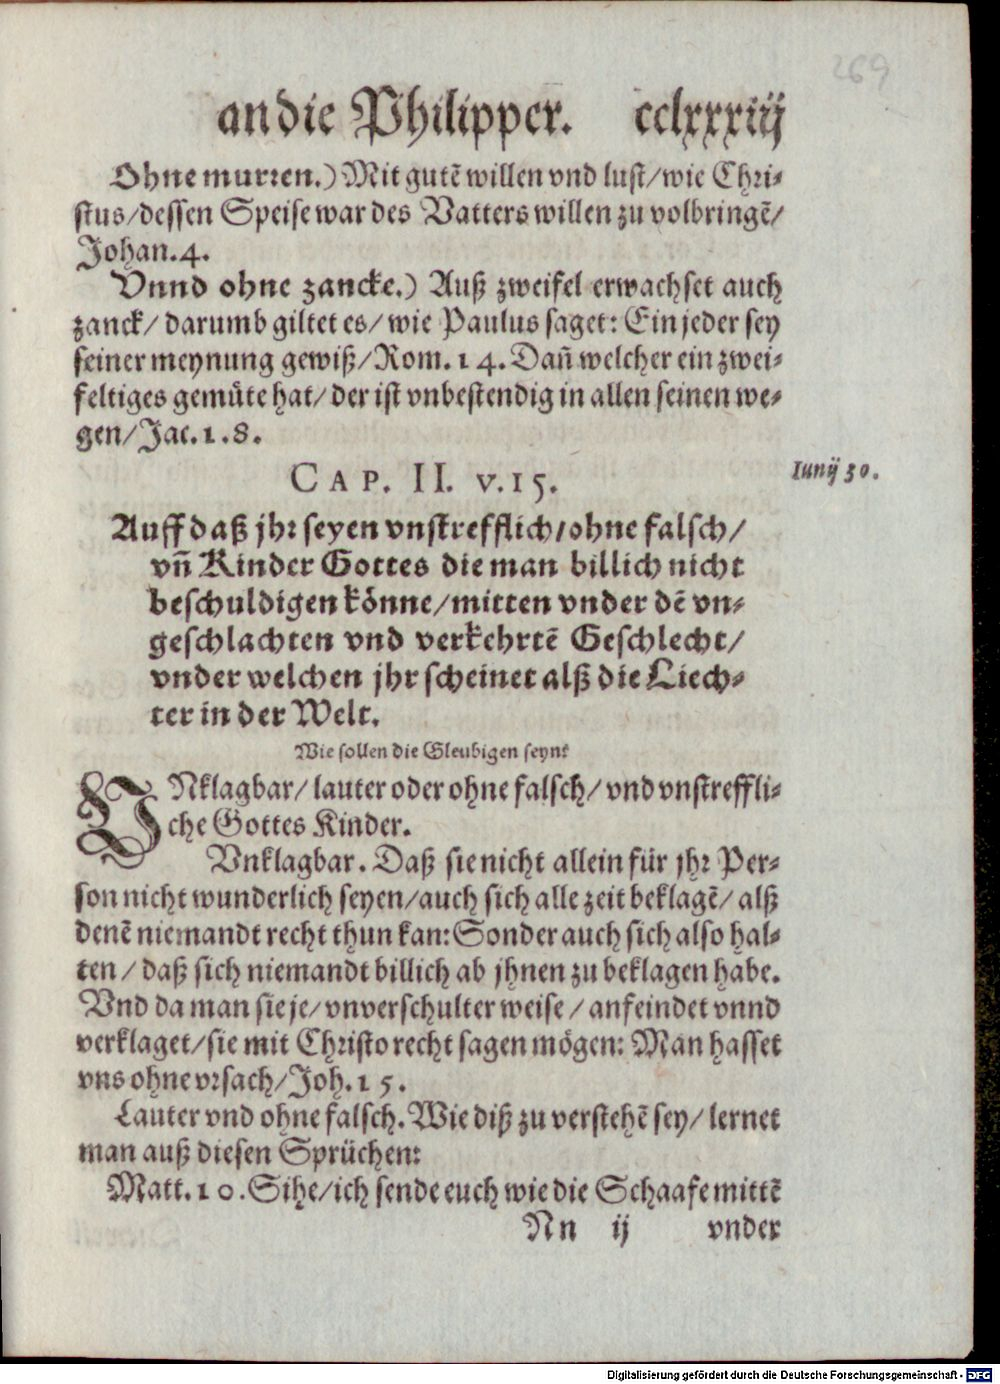 269
an die Philipper. cclxxxiij
Ohne murren.) Mit gutē willen vnd lust/wie Chri-
stus/dessen Speise war des Vatters willen zu volbringē/
Johan.4.
Vnnd ohne zancke.) Auß zweifel erwachset auch
zanck/ darumb giltet es/ wie Paulus saget: Ein jeder sey
seiner meynung gewiß/Rom. 14. Dañ welcher ein zwei-
feltiges gemüte hat/ der ist vnbestendig in allen seinen we-
gen/Jac.1.8.
CAP. II. v.15.
Iunij 30.
Auff daß jhr seyen vnstrefflich/ohne falsch/
vñ Kinder Gottes die man billich nicht
beschuldigen könne/mitten vnder dē vn-
geschlachten vnd verkehrtē Geschlecht/
vnder welchen jhr scheinet alß die Liech-
ter in der Welt.
Wie sollen die Gleubigen seyn?
VNklagbar/ lauter oder ohne falsch/ vnd vnstreffli-
che Gottes Kinder.
Vnklagbar. Daß sie nicht allein für jhr Per-
son nicht wunderlich seyen/auch sich alle zeit beklagē/ alß
denē niemandt recht thun kan: Sonder auch sich also hal-
ten/ daß sich niemandt billich ab jhnen zu beklagen habe.
Vnd da man sie je/ vnverschulter weise/ anfeindet vnnd
verklaget/sie mit Christo recht sagen mögen: Man hasset
vns ohne vrsach/Joh.15.
Lauter vnd ohne falsch. Wie diß zu verstehē sey/ lernet
man auß diesen Sprüchen:
Matt.10. Sihe/ich sende euch wie die Schaafe mittē
Nn ij vnder
Digitalisierung gefördert durch die Deutsche Forschungsgemeinschaft - DFG